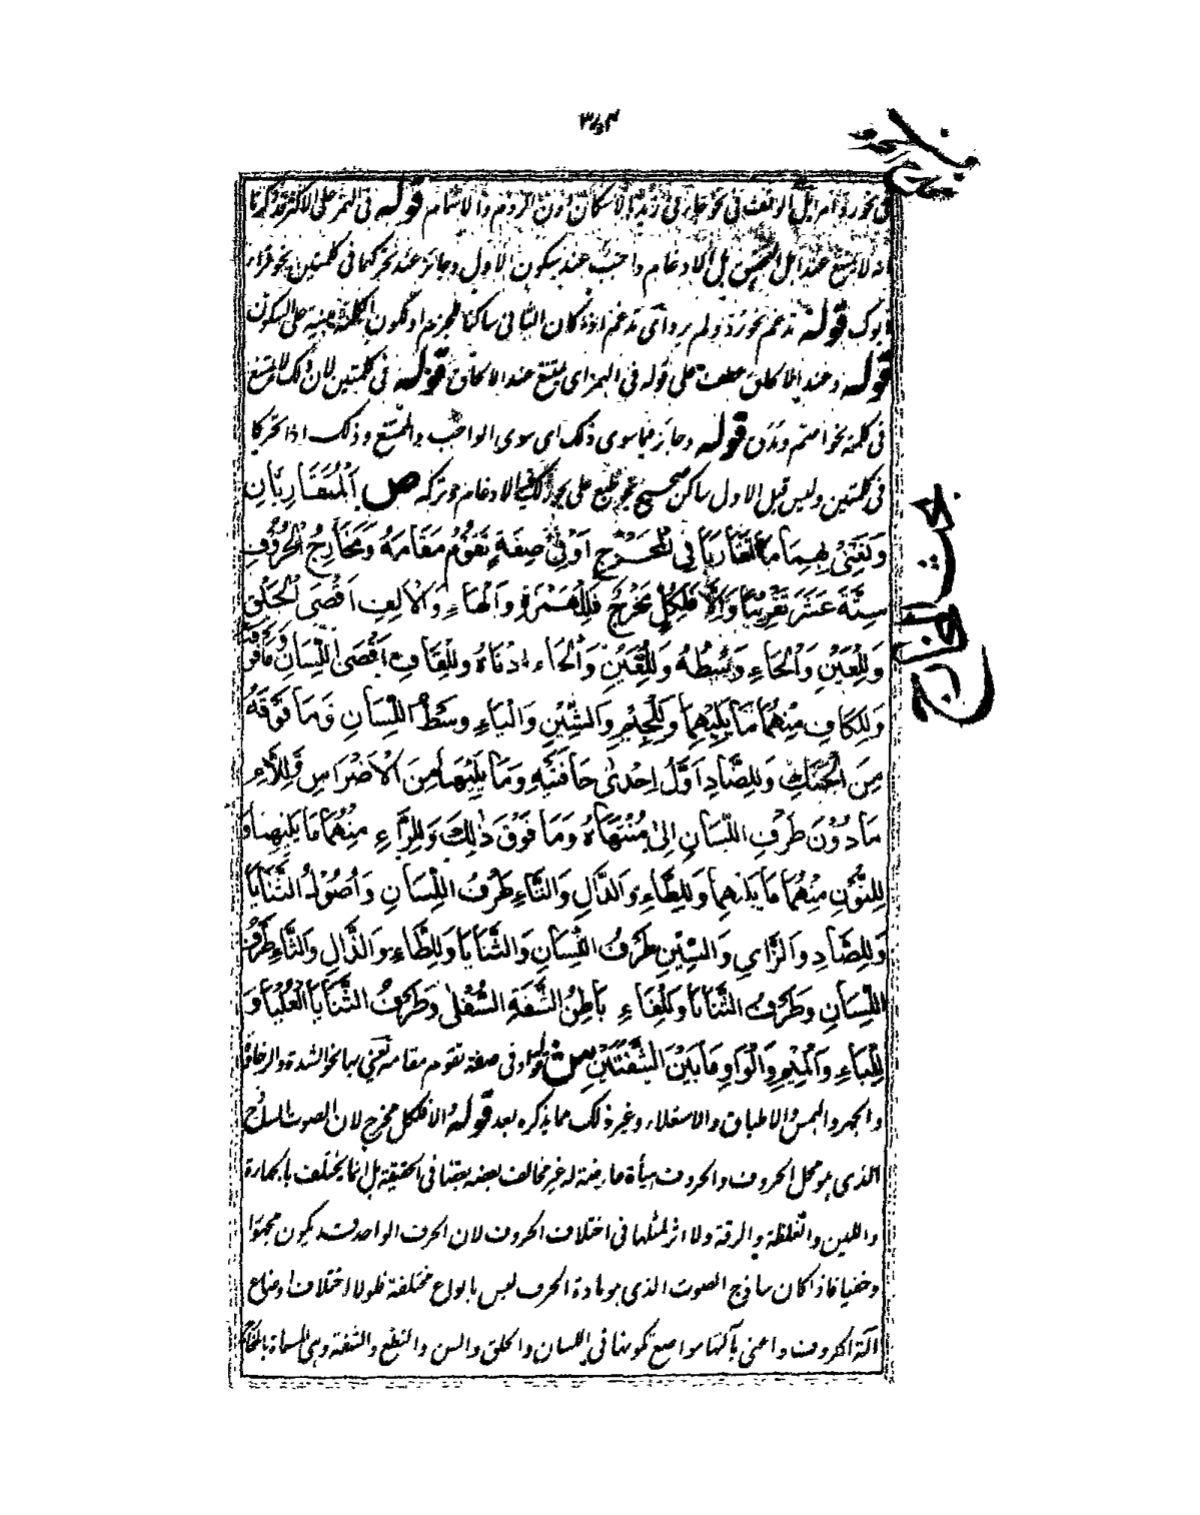 في نحو رد امر اوبل الوقف في نحو جاءني زيد الاسكان دون الروم والاشمام قوله في الهمز على الاكثر قد ذكرنا
انه لا يمتنع عند اهل التحقيق بل الادغام واجب عند سكون الاول وجائز عند تحركهما في كلمتين نحو قراء
ابوك قوله تدغم نحو رد ولم يرد اى تدغم اذا كان الثانى ساكنا للجزم او لكون الكلمة مبنية على السكون
قوله وعند الالحاق عطف على قوله في الهمز اى يمتنع عند الالحاق قوله في كلمتين لان ذلك لا يمتنع
في كلمة نحو اصم ومدق قوله وجائز فيما سوى ذلك اى سوى الواجب والممتنع وذلك اذا تحركا
في كلمتين وليس قبل الاول ساكن صحيح نحو طبع على يجوز لك فيه الادغام وتركه ص اَلْمُتَقَارِبَانِ
وَنَعْنِىْ بِهِمَا مَا تَقَارَبَا فِي الْمَخْرَجِ اَوْ فِيْ صِفَةٍ تَقُوْمُ مَقَامَهُ وَمَخَارِجُ الْحُرُوْفِ
سِتَّةَ عَشَرَ تَقْرِيْبًا وَاِلَّا فَلِكُلٍّ مَخْرَجٌ فَلِلْهَمْزَةِ وَالْهَاءِ وَالْاَلِفِ اَقْصَى الْحَلْقِ
وَلِلْعَيْنِ وَالْحَاءِ وَسْطُهُ وَلِلْغَيْنِ وَالْخَاءِ اَدْنَاهُ وَلِلْقَافِ اَقْصَى اللِّسَانِ وَمَا فَوْقَهُ
وَلِلْكَافِ مِنْهُمَا مَا يَلِيْهِمَا وَلِلْجِيْمِ وَالشِّيْنِ وَالْيَاءِ وَسَطُ اللِّسَانِ وَمَا فَوْقَهُ
مِنَ الْحَنَكِ وَلِلضَّادِ اَوَّلُ اِحْدٰى حَافَتَيْهِ وَمَا يَلِيْهَا مِنَ الْاَضْرَاسِ وَلِلَّامِ
مَا دُوْنَ طَرَفِ اللِّسَانِ اِلٰى مُنْتَهَاهُ وَمَا فَوْقَ ذٰلِكَ وَلِلرَّاءِ مِنْهُمَا مَا يَلِيْهِمَا وَ
لِلنُّوْنِ مِنْهُمَا مَا يَلِيْهِمَا وَلِلطَّاءِ وَالدَّالِ وَالتَّاءِ طَرَفُ اللِّسَانِ وَاُصُوْلُ الثَّنَايَا
وَلِلصَّادِ وَالزَّايِ وَالسِّيْنِ طَرَفُ اللِّسَانِ وَالثَّنَايَا وَلِلظَّاءِ وَالذَّالِ وَالثَّاءِ طَرَفُ
اللِّسَانِ وَطَرَفُ الثَّنَايَا وَلِلْفَاءِ بَاطِنُ الشَّفَةِ السُّفْلٰى وَطَرَفُ الثَّنَايَا الْعُلْيَا وَ
لِلْبَاءِ وَالْمِيْمِ وَالْوَاوِ مَا بَيْنَ الشَّفَتَيْنِ ش قوله او في صفة تقوم مقامه نعني بها نحو الشدة والرخاوة
والجهر والهمس والاطباق والاستعلاء وغير ذلك مما يذكره بعد قوله والا فلكل مخرج لان الصوت الساذج
الذى هو محل الحروف والحروف هيأة عارضة له غير مخالف بعضه بعضا في الحقيقة بل انما يختلف بالجهارة
واللين والغلظة والرقة ولا اثر لمثلها في اختلاف الحروف لان الحرف الواحد قد يكون مجهورا
وخفيا فاذا كان ساذج الصوت الذى هو مادة الحرف ليس بانواع مختلفة فلولا اختلاف اوضاع
آلة الحروف واعنى بآلتها مواضع تكونها في اللسان والحلق والسن والنطع والشفة وهى المسماة بالمخارج
بحث المخارج